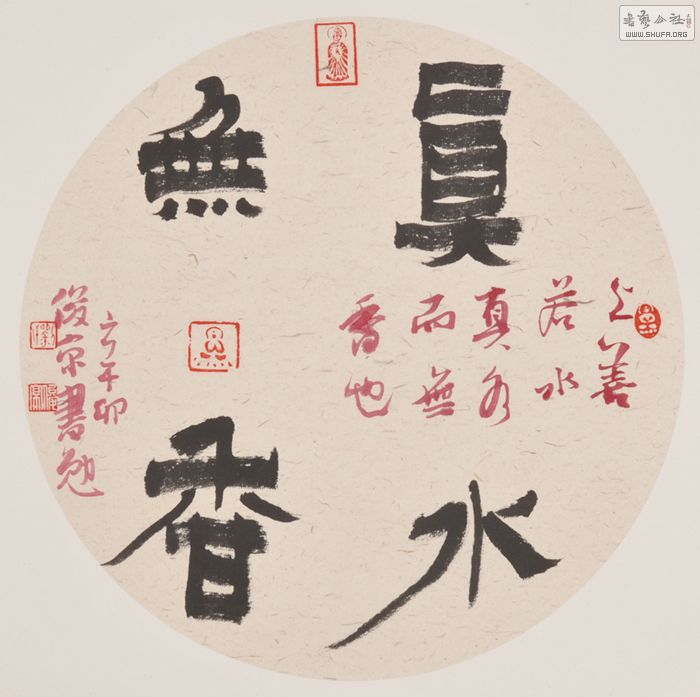 眞水
無香
上善
若水
真水
而無
香也
于辛卯
俊京書勉
書藝公社
WWW.SHUFA.ORG